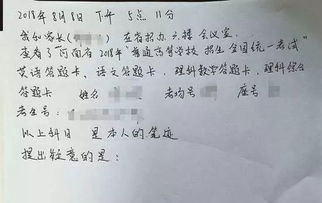 2018年8月8日 下午 5点 11分
我和家长( ) 在省招办六楼会议室,
查看了"河南省2018年普通高等学校招生全国统一考试"
英语答题卡、语文答题卡、理科数学答题卡、理科综合
答题卡 姓名 考场号 座号
考生号:
以上科目 是本人的笔迹
提出疑意的是: